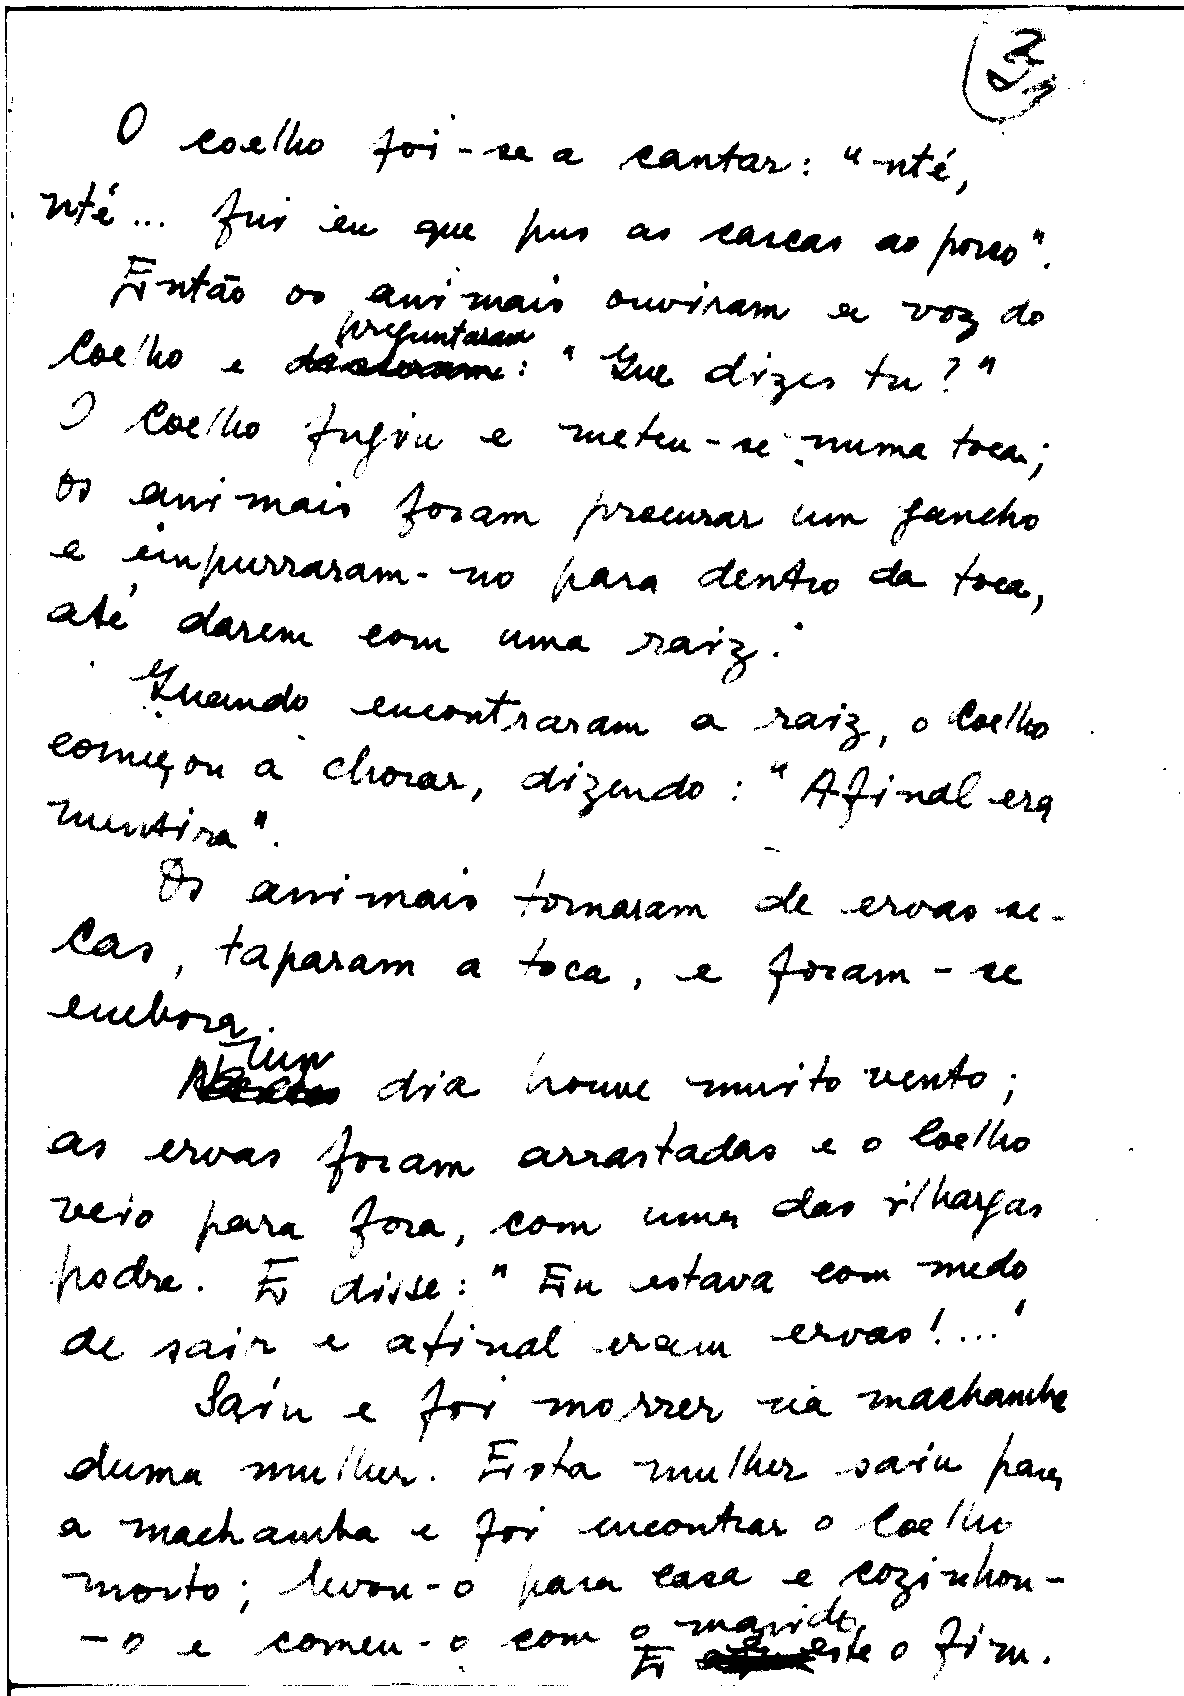 3
O coelho foi-se a cantar: "nté,
nté... fui eu que pus as cascas ao porco".
Então os animais ouviram a voz do
Coelho e preguntaram: "Que dizes tu?"
O Coelho fugiu e meteu-se numa toca;
os animais foram procurar um gancho
e empurraram-no para dentro da toca,
até darem com uma raiz.
Quando encontraram a raiz, o Coelho
começou a chorar, dizendo: "Afinal era
mentira".
Os animais tomaram de ervas se-
cas, taparam a toca, e foram-se
embora.
Num dia houve muito vento;
as ervas foram arrastadas e o Coelho
veio para fora, com uma das ilhargas
podre. E disse: "Eu estava com medo
de sair e afinal eram ervas!..."
Saiu e foi morrer na machamba
duma mulher. Esta mulher saiu para
a machamba e foi encontrar o Coelho
morto; levou-o para casa e cozinhou-
-o e comeu-o com o marido.
E este o fim.